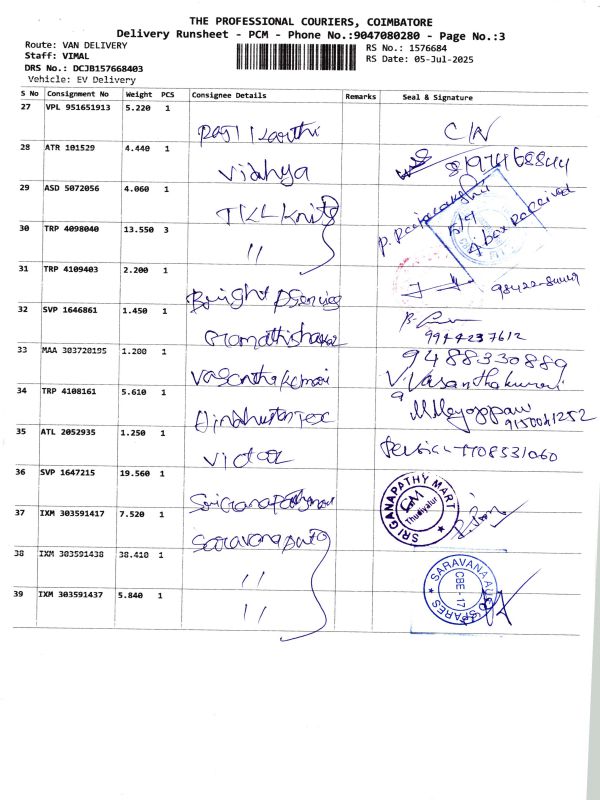 THE PROFESSIONAL COURIERS, COIMBATORE
Delivery Runsheet - PCM - Phone No.:9047080280 - Page No.:3
Route: VAN DELIVERY
Staff: VIMAL
DRS No.: DCJB157668403
Vehicle: EV Delivery
RS No.: 1576684
RS Date: 05-Jul-2025
S No Consignment No Weight PCS Consignee Details Remarks Seal & Signature
27 VPL 951651913 5.220 1 C/N
28 ATR 101529 4.440 1 Vidhya 8197468844
29 ASD 5072056 4.060 1 TKL Knits
30 TRP 4098040 13.550 3 " 5/7 Received
31 TRP 4109403 2.200 1 Bright
32 SVP 1646861 1.450 1 9944237612
33 MAA 303720195 1.200 1 Vasantha Kumari 9488330889
V. Vasanthakumari
34 TRP 4108161 5.610 1 Hindustan Tex 9150041252
35 ATL 2052935 1.250 1 Victor
36 SVP 1647215 19.560 1 SRI GANAPATHY MART Thudiyalur
37 IXM 303591417 7.520 1 Saravana auto
38 IXM 303591438 38.410 1 " SARAVANA AUTO SPARES CBE-17
39 IXM 303591437 5.840 1 "